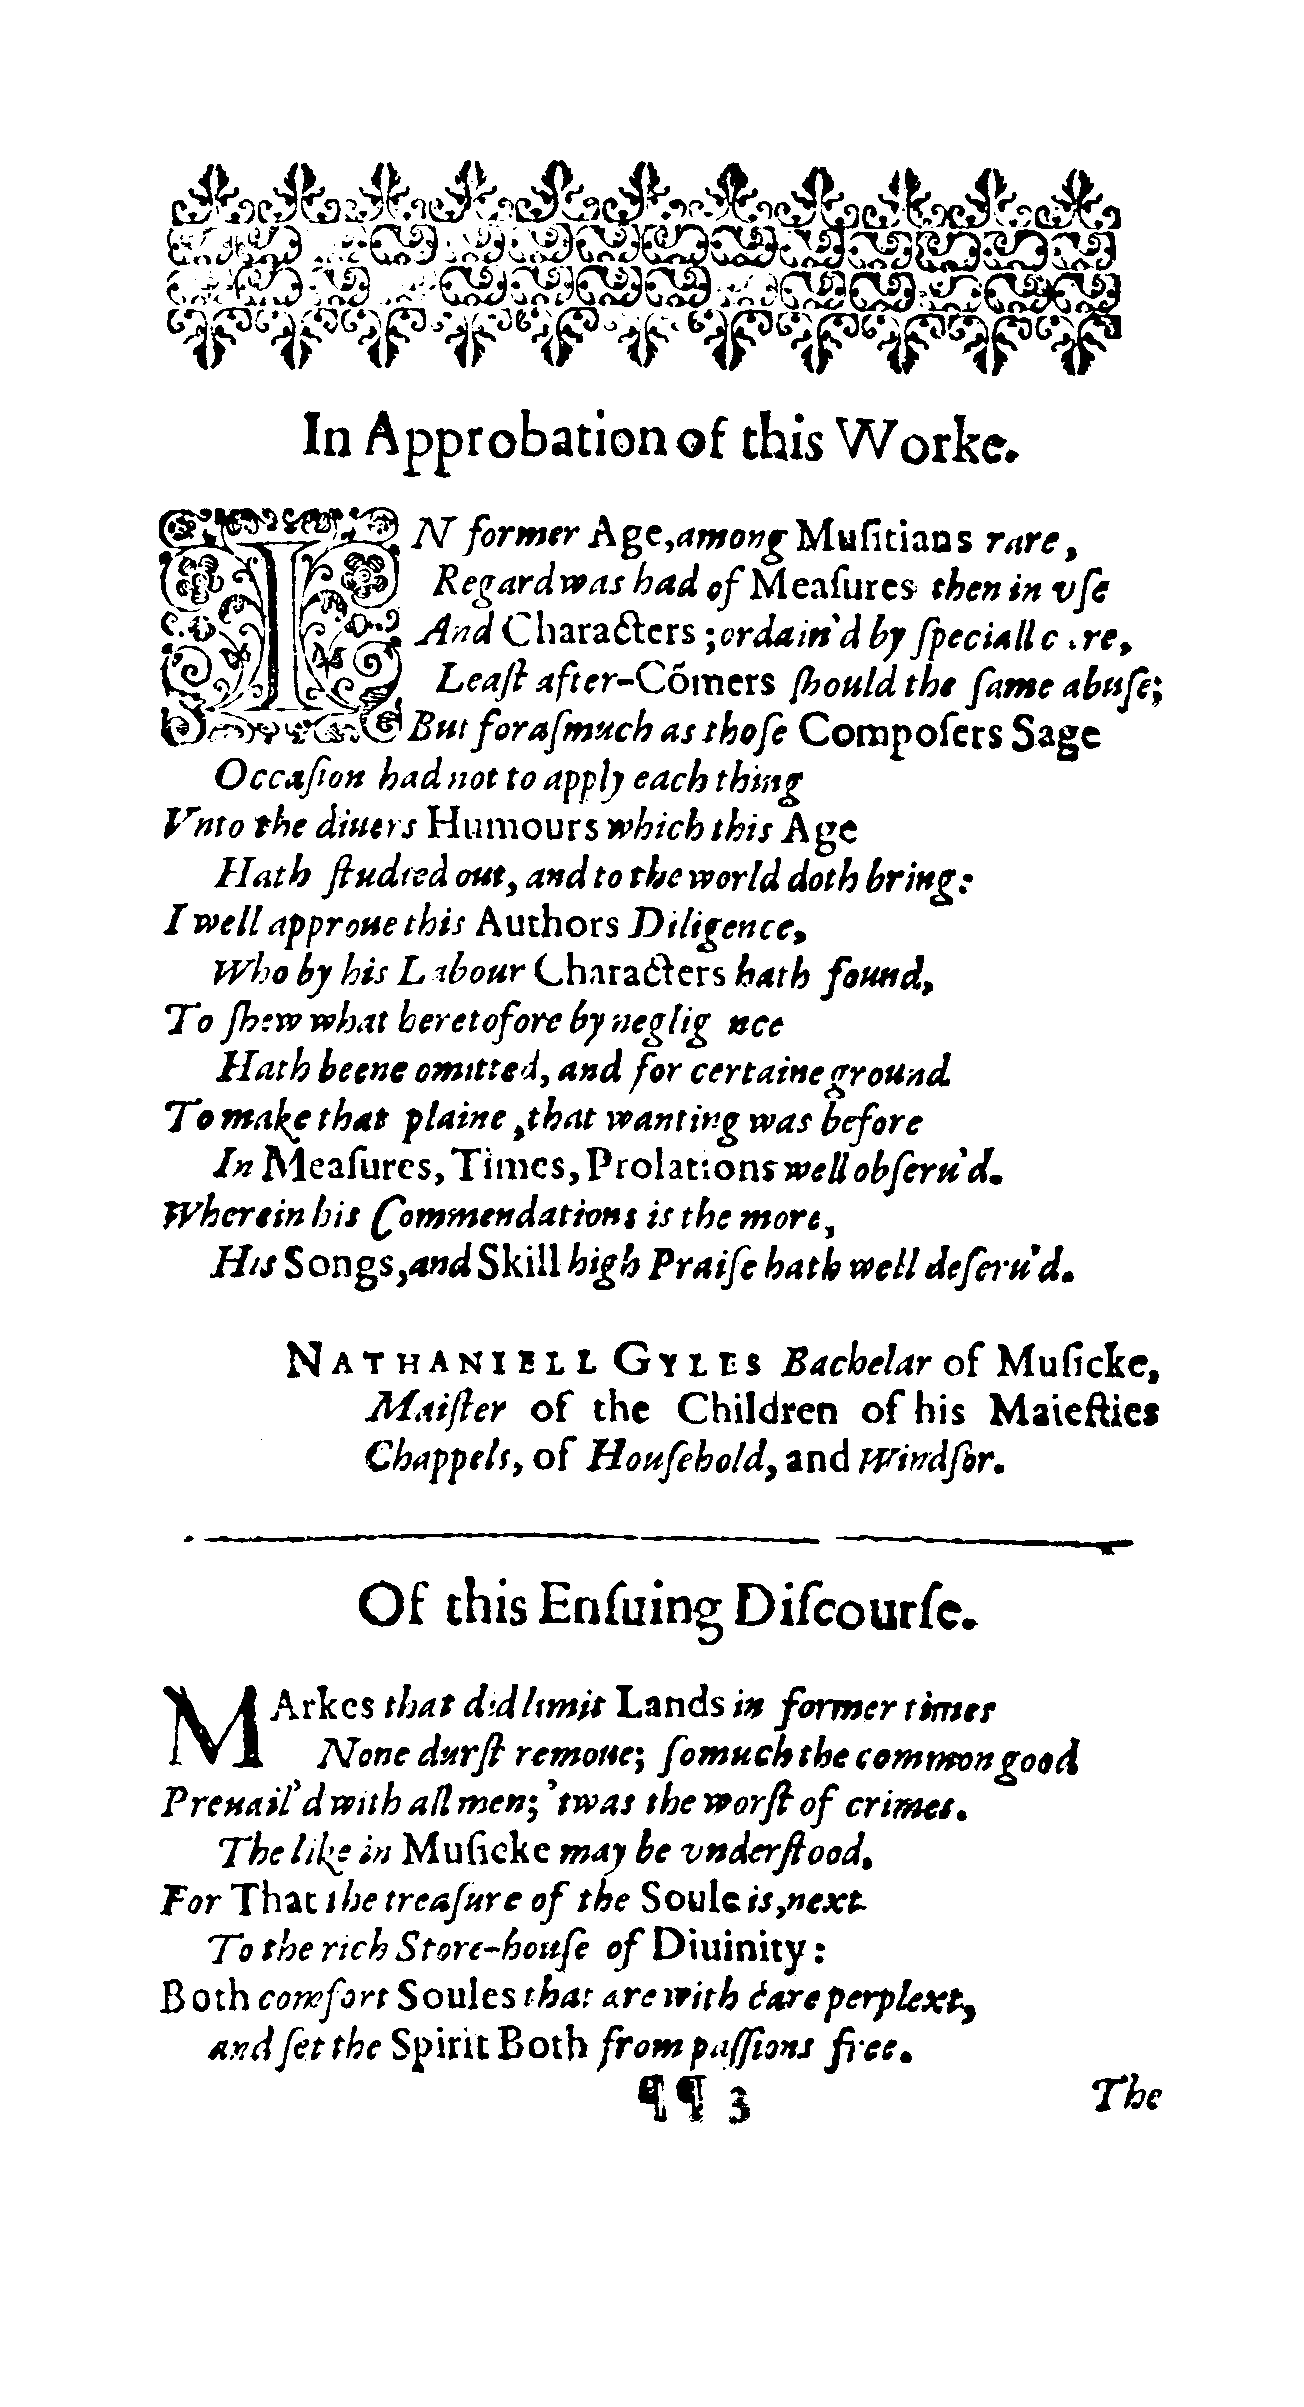 In Approbation of this Worke.
IN former Age, among Muſitians rare,
Regard was had of Meaſures then in vſe
And Characters; ordain'd by ſpeciall c.re,
Leaſt after-Cõmers ſhould the ſame abuſe;
But foraſmuch as thoſe Compoſers Sage
Occaſion had not to apply each thing
Vnto the diuers Humours which this Age
Hath ſtudied out, and to the world doth bring:
I well approue this Authors Diligence,
Who by his Labour Characters hath found,
To ſhew what heretofore by neglig nce
Hath beene omitted, and for certaine ground
To make that plaine, that wanting was before
In Meaſures, Times, Prolations well obſeru'd.
Wherein his Commendations is the more,
His Songs, and Skill high Praiſe hath well deſeru'd.
NATHANIELL GYLES Bachelar of Muſicke,
Maiſter of the Children of his Maieſties
Chappels, of Houſehold, and Windſor.
Of this Enſuing Diſcourſe.
MArkes that did limit Lands in former times
None durſt remoue; ſo much the common good
Preuail'd with all men; 'twas the worſt of crimes.
The like in Muſicke may be vnderſtood,
For That the treaſure of the Soule is, next
To the rich Store-houſe of Diuinity:
Both comfort Soules that are with care perplext,
and ſet the Spirit Both from paſſions free.
¶¶ 3 The